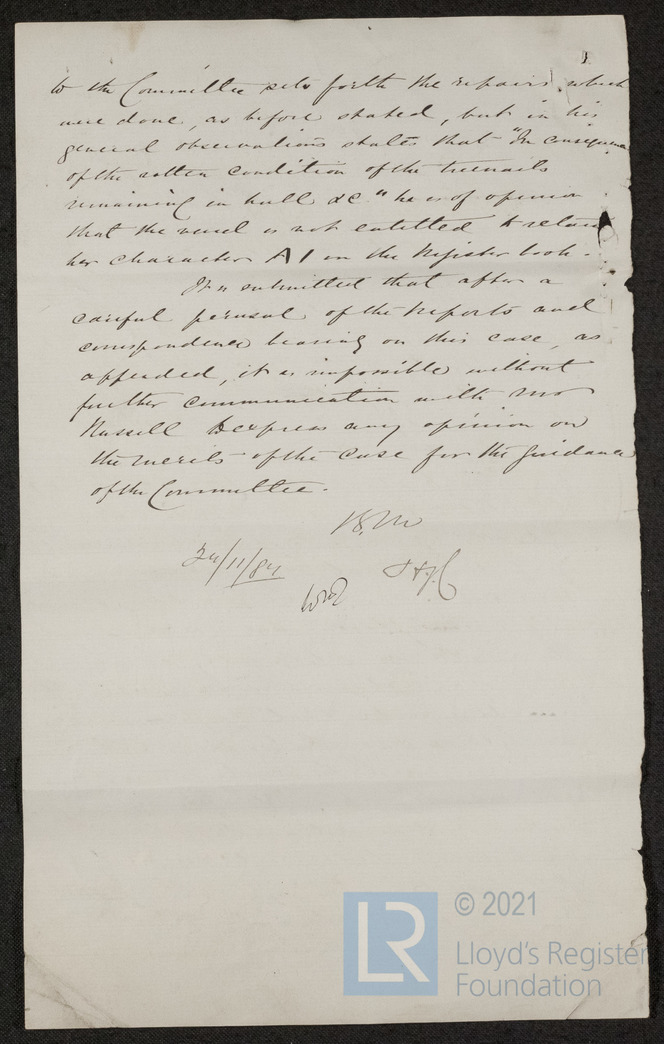 to the Committee sets forth the repairs which
were done, as before stated, but in his
general observations states that "In consequence
of the rotten condition of the treenails
remaining in hull &c" he is of opinion
that the vessel is not entitled to retain
her character A1 in the Register book.
It is submitted that after a
careful perusal of the Reports and
correspondence bearing on this case, as
appended, it is impossible without
further communication with Mr
Russell to express any opinion on
the merits of the case for the guidance
of the Committee.
B.M
24/11/84
© 2021
LR
Lloyd's Register
Foundation